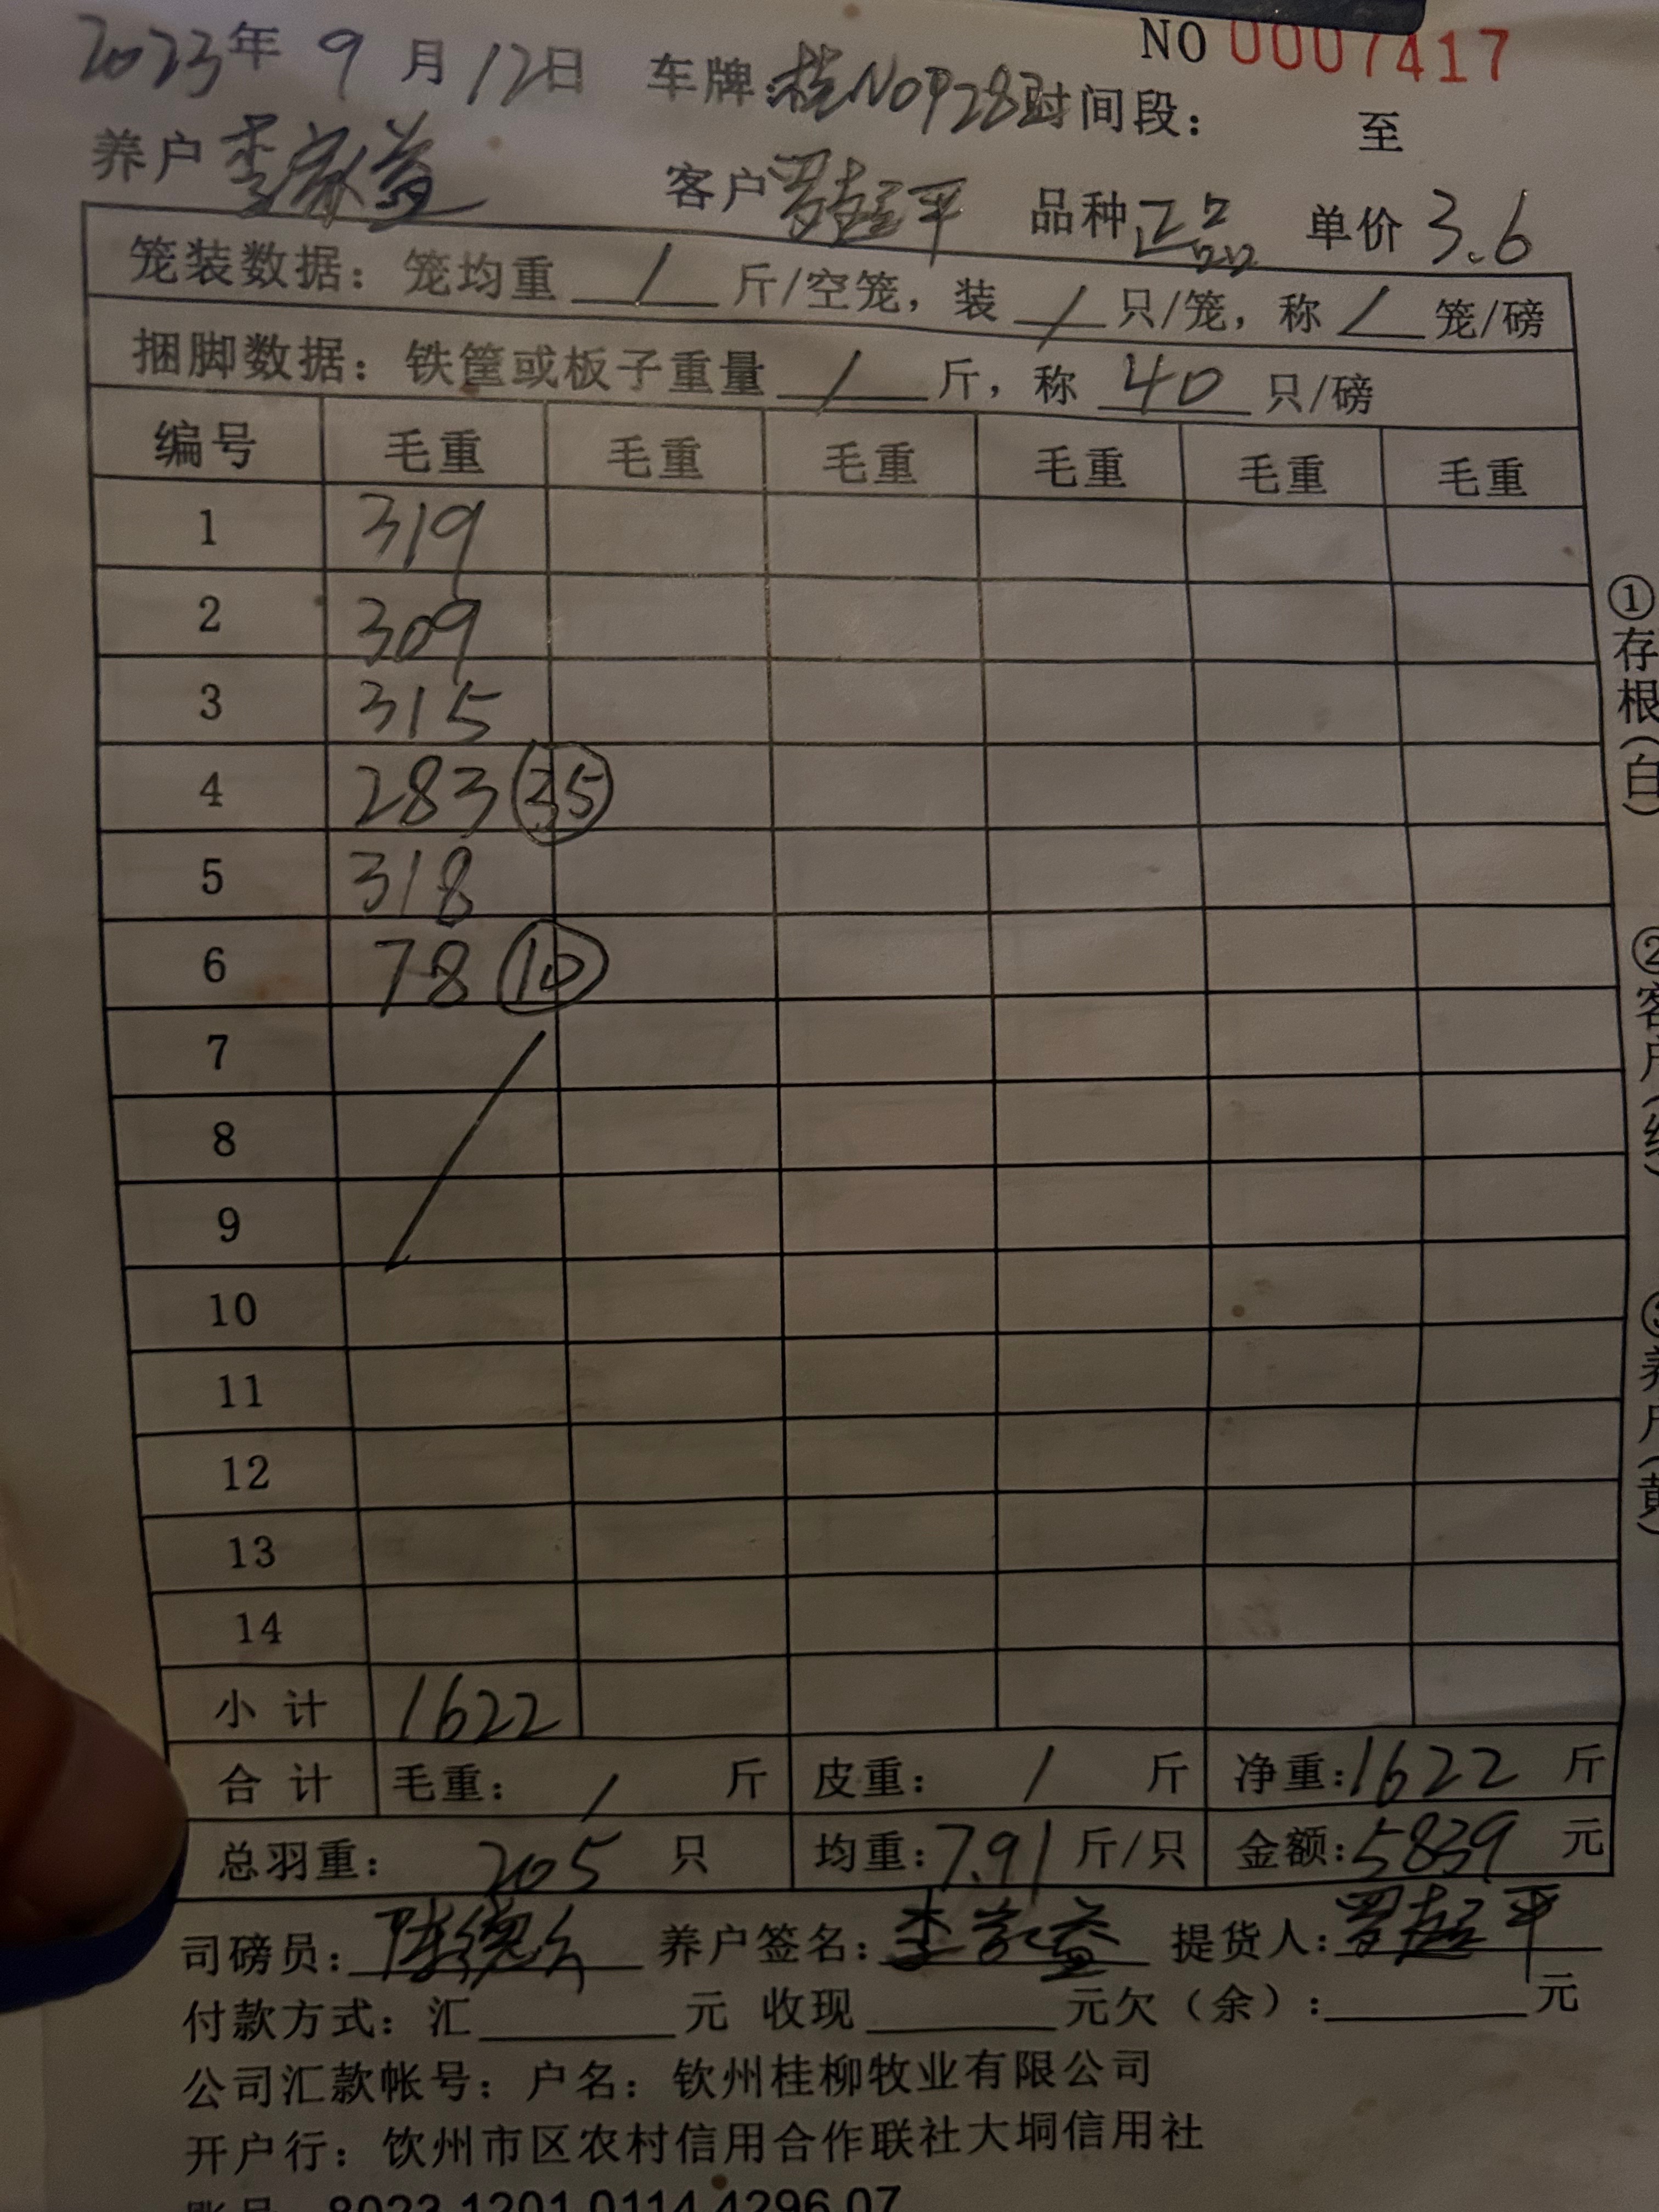 NO 0007417
2023年 9 月 12日 车牌:桂N0P283时间段: 至
养户 李家益 客户 罗超平 品种 正品 单价 3.6
笼装数据: 笼均重 / 斤/空笼, 装 / 只/笼, 称 / 笼/磅
捆脚数据: 铁筐或板子重量 / 斤, 称 40 只/磅
编号 毛重 毛重 毛重 毛重 毛重 毛重
1 319
2 309
3 315
4 283 35
5 318
6 78 10
7
8
9
10
11
12
13
14
小 计 1622
合 计 毛重: / 斤 皮重: / 斤 净重:1622 斤
总羽重: 205 只 均重:7.91 斤/只 金额:5839 元
司磅员: 养户签名:李家益 提货人:罗超平
付款方式: 汇 元 收现 元欠(余): 元
公司汇款帐号: 户名: 钦州桂柳牧业有限公司
开户行: 饮州市区农村信用合作联社大垌信用社
账号 8023 1201 0114 4296 07
①存根(白)
②客户(红)
③养户(黄)